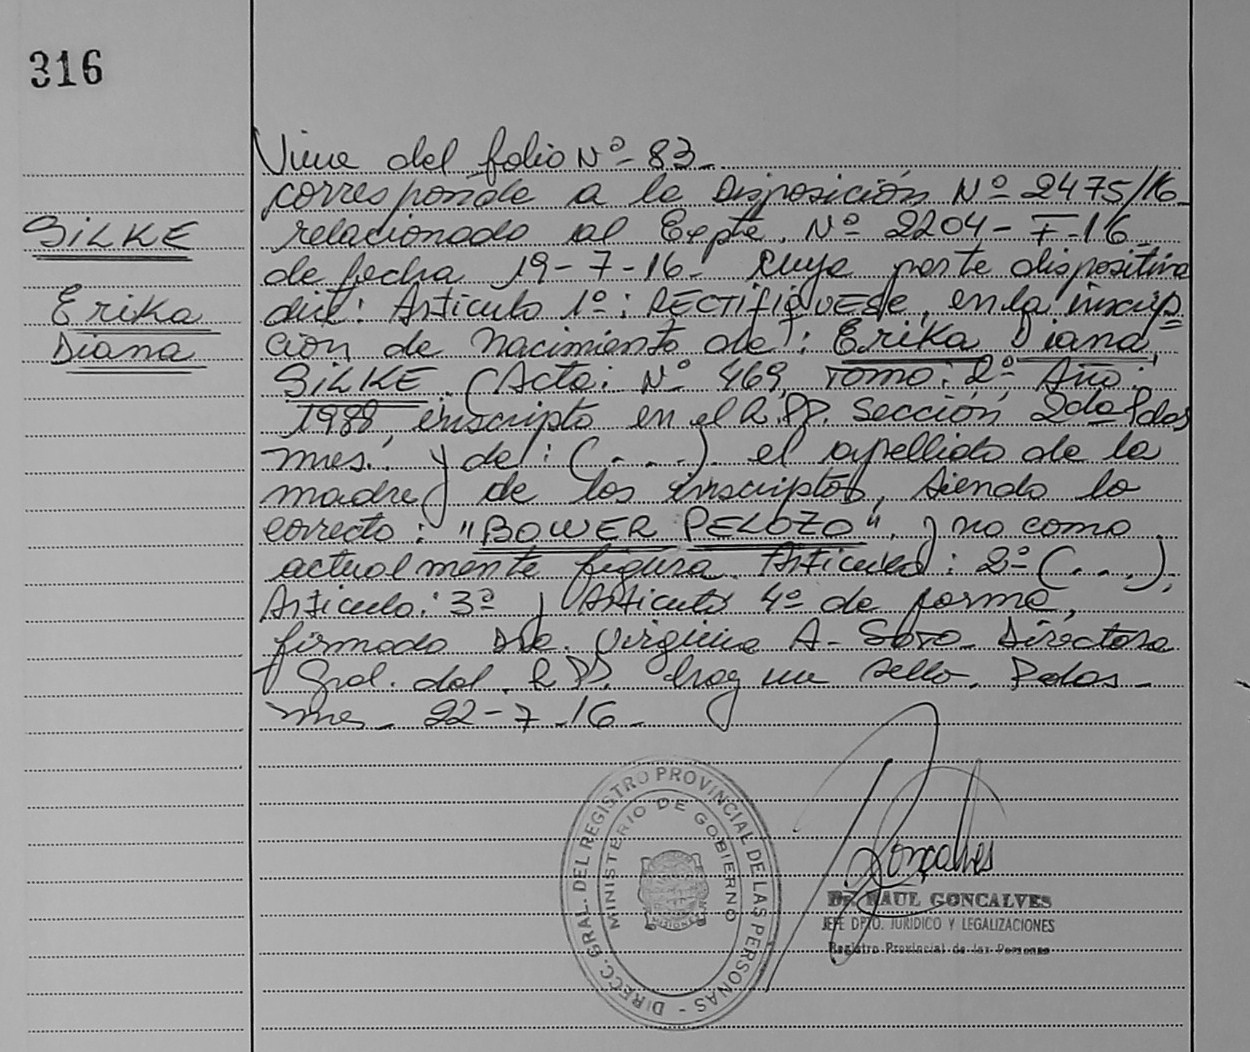 316
SILKE
Erika
Diana
Viene del folio Nº - 83 -
corresponde a la Disposición Nº 2475/16
relacionado al Expte. Nº 2204 - F - 16
de fecha 19-7-16. Cuya parte dispositiva
dice: Artículo 1º: RECTIFIQUESE, en la inscrip
ción de nacimiento de: Erika Diana
SILKE. (Acta: Nº 469, Tomo: 2º Año:
1988, inscripto en el R.PP. Sección 2da Pdas
mnes. y de: (. . .) el apellido de la
madre de los inscriptos, siendo lo
correcto: "BOWER PELOZO", y no como
actualmente figura. Artículo: 2º (. . .),
Artículo: 3º y Artículo 4º de forma,
firmado Dra. Virginia A. Soto - Directora
Gral. del R.PP. hay un sello. Pdas -
mnes - 22-7-16 -
DIRECC. GRAL. DEL REGISTRO PROVINCIAL DE LAS PERSONAS -
MINISTERIO DE GOBIERNO
MISIONES
Gonçalves
Dr. RAUL GONCALVES
JEFE DPTO. JURIDICO Y LEGALIZACIONES
Registro Provincial de las Personas